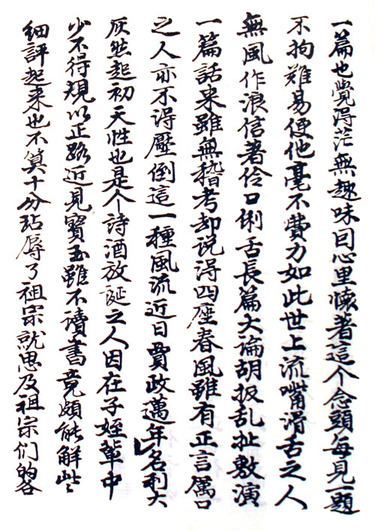 一篇也覺得茫無趣味囙心里懷著這个念頭每見一題
不拘難易便他毫不費力如此世上流嘴滑舌之人
無風作浪信著伶口俐舌長篇大論胡扳乱扯敷演
一篇話来雖無稽考却说得四座春風雖有正言厲口
之人亦不得壓倒這一種風流近日賈政邁年名利大
灰然起初天性也是个詩酒放誕之人因在子姪輩中
少不得規以正路近見寳玉雖不讀書竟頗能解此
細評起来也不算十分玷辱了祖宗就思及祖宗们的各